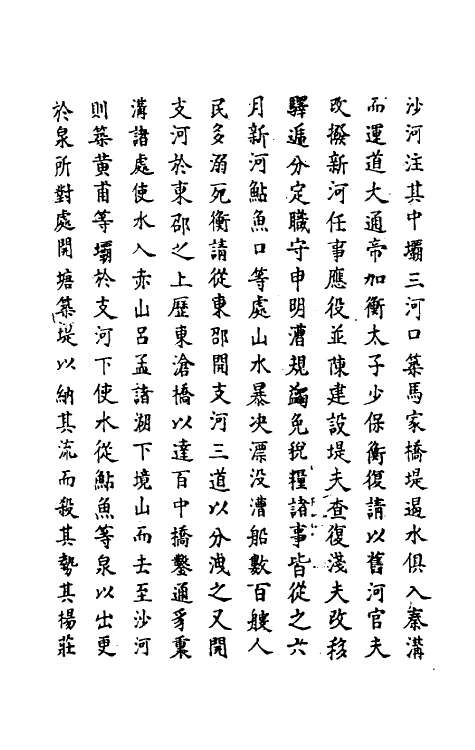 沙河注其中壩三河口築馬家橋堤遏水俱入秦溝
而運道大通帝加衡太子少保衡復請以舊河官夫
改撥新河任事應役並陳建設堤夫查復淺夫改移
驛遞分定職守申明漕規蠲免稅糧諸事皆從之六
月新河鮎魚口等處山水暴决漂没漕船數百艘人
民多溺死衡請從東邵開支河三道以分洩之又開
支河於東邵之上歷東滄橋以達百中橋鑿通豸裏
溝諸處使水入赤山吕孟諸湖下境山而去至沙河
則築黄甫等壩於支河下使水從鮎魚等泉以出更
於泉所對處開塘築堤以納其流而殺其勢其楊莊